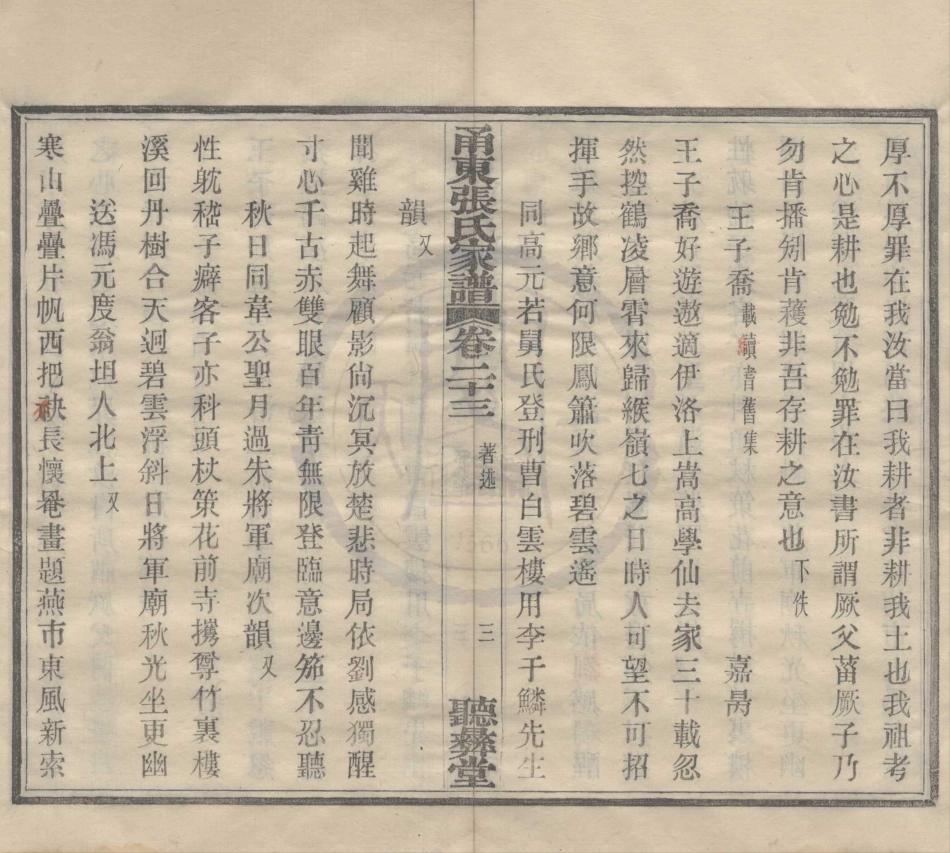 厚不厚罪在我汝當曰我耕者非耕我土也我祖考
之心是耕也勉不勉罪在汝書所謂厥父菑厥子乃
勿肯播矧肯穫非吾存耕之意也下佚
王子喬載續耆舊集 嘉昺
王子喬好遊遨適伊洛上嵩高學仙去家三十載忽
然控鶴凌層霄來歸緱嶺七之日時人可望不可招
揮手故鄉意何限鳳簫吹落碧雲遙
同高元若舅氏登刑曹白雲樓用李于鱗先生
韻又
聞雞時起舞顧影尙沉冥放楚悲時局依劉感獨醒
寸心千古赤雙眼百年靑無限登臨意邊笳不忍聽
秋日同韋公聖月過朱將軍廟次韻又
性躭嵇子癖客子亦科頭杖策花前寺攜尊竹裏樓
溪回丹樹合天迥碧雲浮斜日將軍廟秋光坐更幽
送馮元度翁坦人北上又
寒山疊疊片帆西把袂長懷罨畫題燕市東風新索
甬東張氏家譜 卷二十三 著述 三 聽彝堂